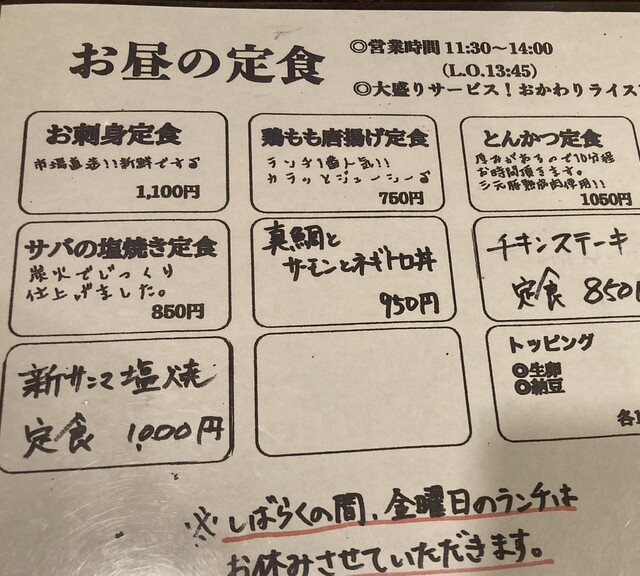 お昼の定食
◎営業時間 11:30～14:00
(L.O.13:45)
◎大盛りサービス！おかわりライス
お刺身定食
市場直送!!新鮮ですよ
1,100円
鶏もも唐揚げ定食
ランチ1番人気!!
カラッとジューシーよ
750円
とんかつ定食
厚みがあるので10分程
お時間頂きます。
三元豚熟成肉使用!!
1050円
サバの塩焼き定食
炭火でじっくり
仕上げました。
850円
真鯛と
サーモンとネギトロ丼
950円
チキンステーキ
定食 850
新サンマ塩焼
定食 1,000円
トッピング
◎生卵
◎納豆
各
※しばらくの間、金曜日のランチは
お休みさせていただきます。